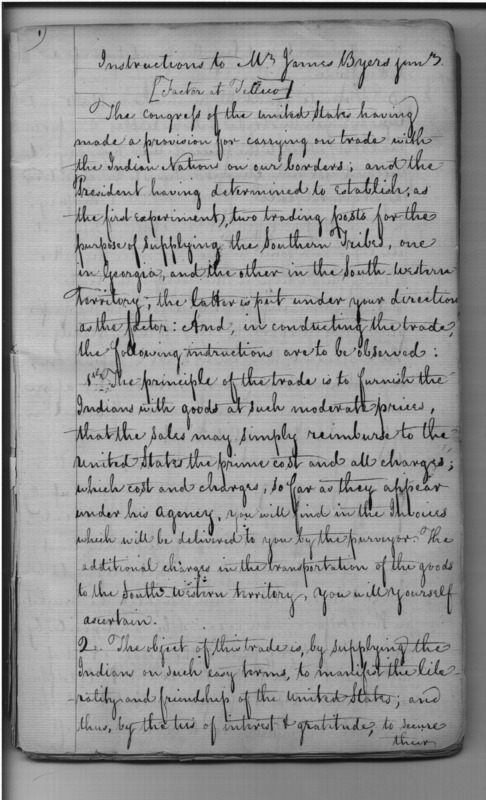 1
Instructions to Mr James Byers junr.
[Factor at Tellico]
The Congress of the United States having
made a provision for carrying on trade with
the Indian Nations on our borders; and the
President having determined to establish, as
the first experiment, two trading posts for the
purpose of supplying the Southern Tribes, one
in Georgia, and the other in the South-western
Territory; the latter is put under your direction
as the factor: And, in conducting the trade,
the following instructions are to be observed:
1st. The principle of the trade is to furnish the
Indians with goods at such moderate prices,
that the sales may simply reimburse to the
United States the prime cost and all charges;
which cost and charges, so far as they appear
under his agency, you will find in the Invoices
which will be delivered to you by the purveyor. The
additional charges in the transportation of the goods
to the South-Western territory, you will yourself
ascertain.
2. The object of this trade is, by supplying the
Indians on such easy terms, to manifest the libe-
rality and friendship of the United States; and
thus, by the ties of interest & gratitude, to secure
their